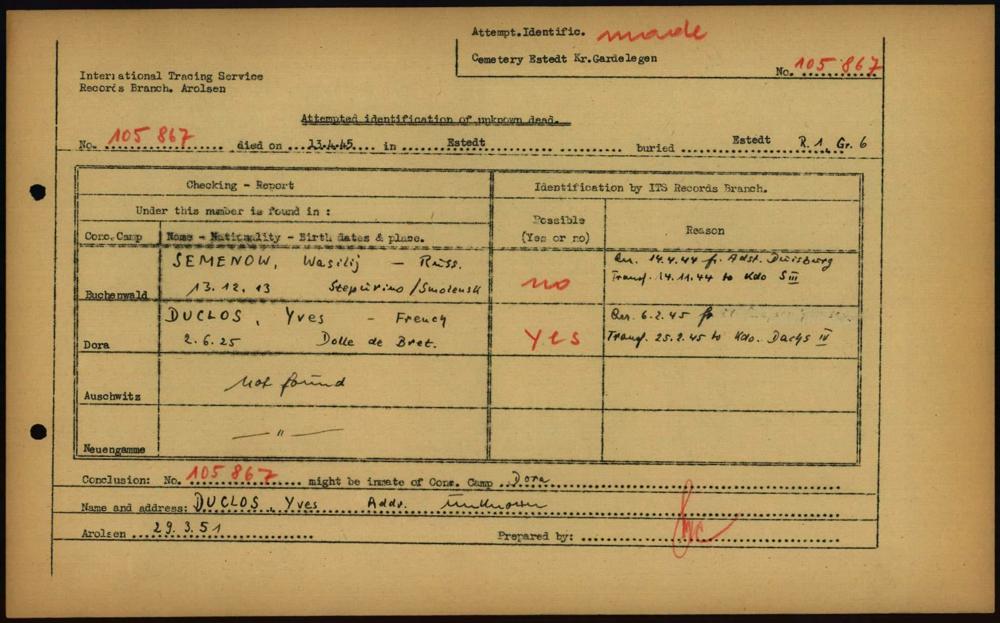 Attempt.Identific. made
Cemetery Estedt Kr.Gardelegen
No. 105 867
International Tracing Service
Records Branch. Arolsen
Attempted identification of unknown dead.
No. 105 867 died on 13.4.45 in Estedt buried Estedt R. 1, Gr. 6
Checking - Report
Identification by ITS Records Branch.
Under this number is found in :
Possible
(Yes or no)
Reason
Conc.Camp
Name - Nationality - Birth dates & place.
SEMENOW, Wasilij - Russ.
13.12.13 /Smolensk
Buchenwald
no
14.4.44 fr. Duisburg
Transf. 14.11.44 to Kdo S III
DUCLOS, Yves - French
2.6.25 Dolle de Bret.
Dora
Yes
6.2.45 fr
Transf. 25.2.45 to Kdo. Dachs IV
Auschwitz
not found
Neuengamme
— " —
Conclusion: No. 105 867 might be inmate of Conc. Camp Dora
Name and address: DUCLOS, Yves Addr. unknown
Arolsen 29.3.51
Prepared by: